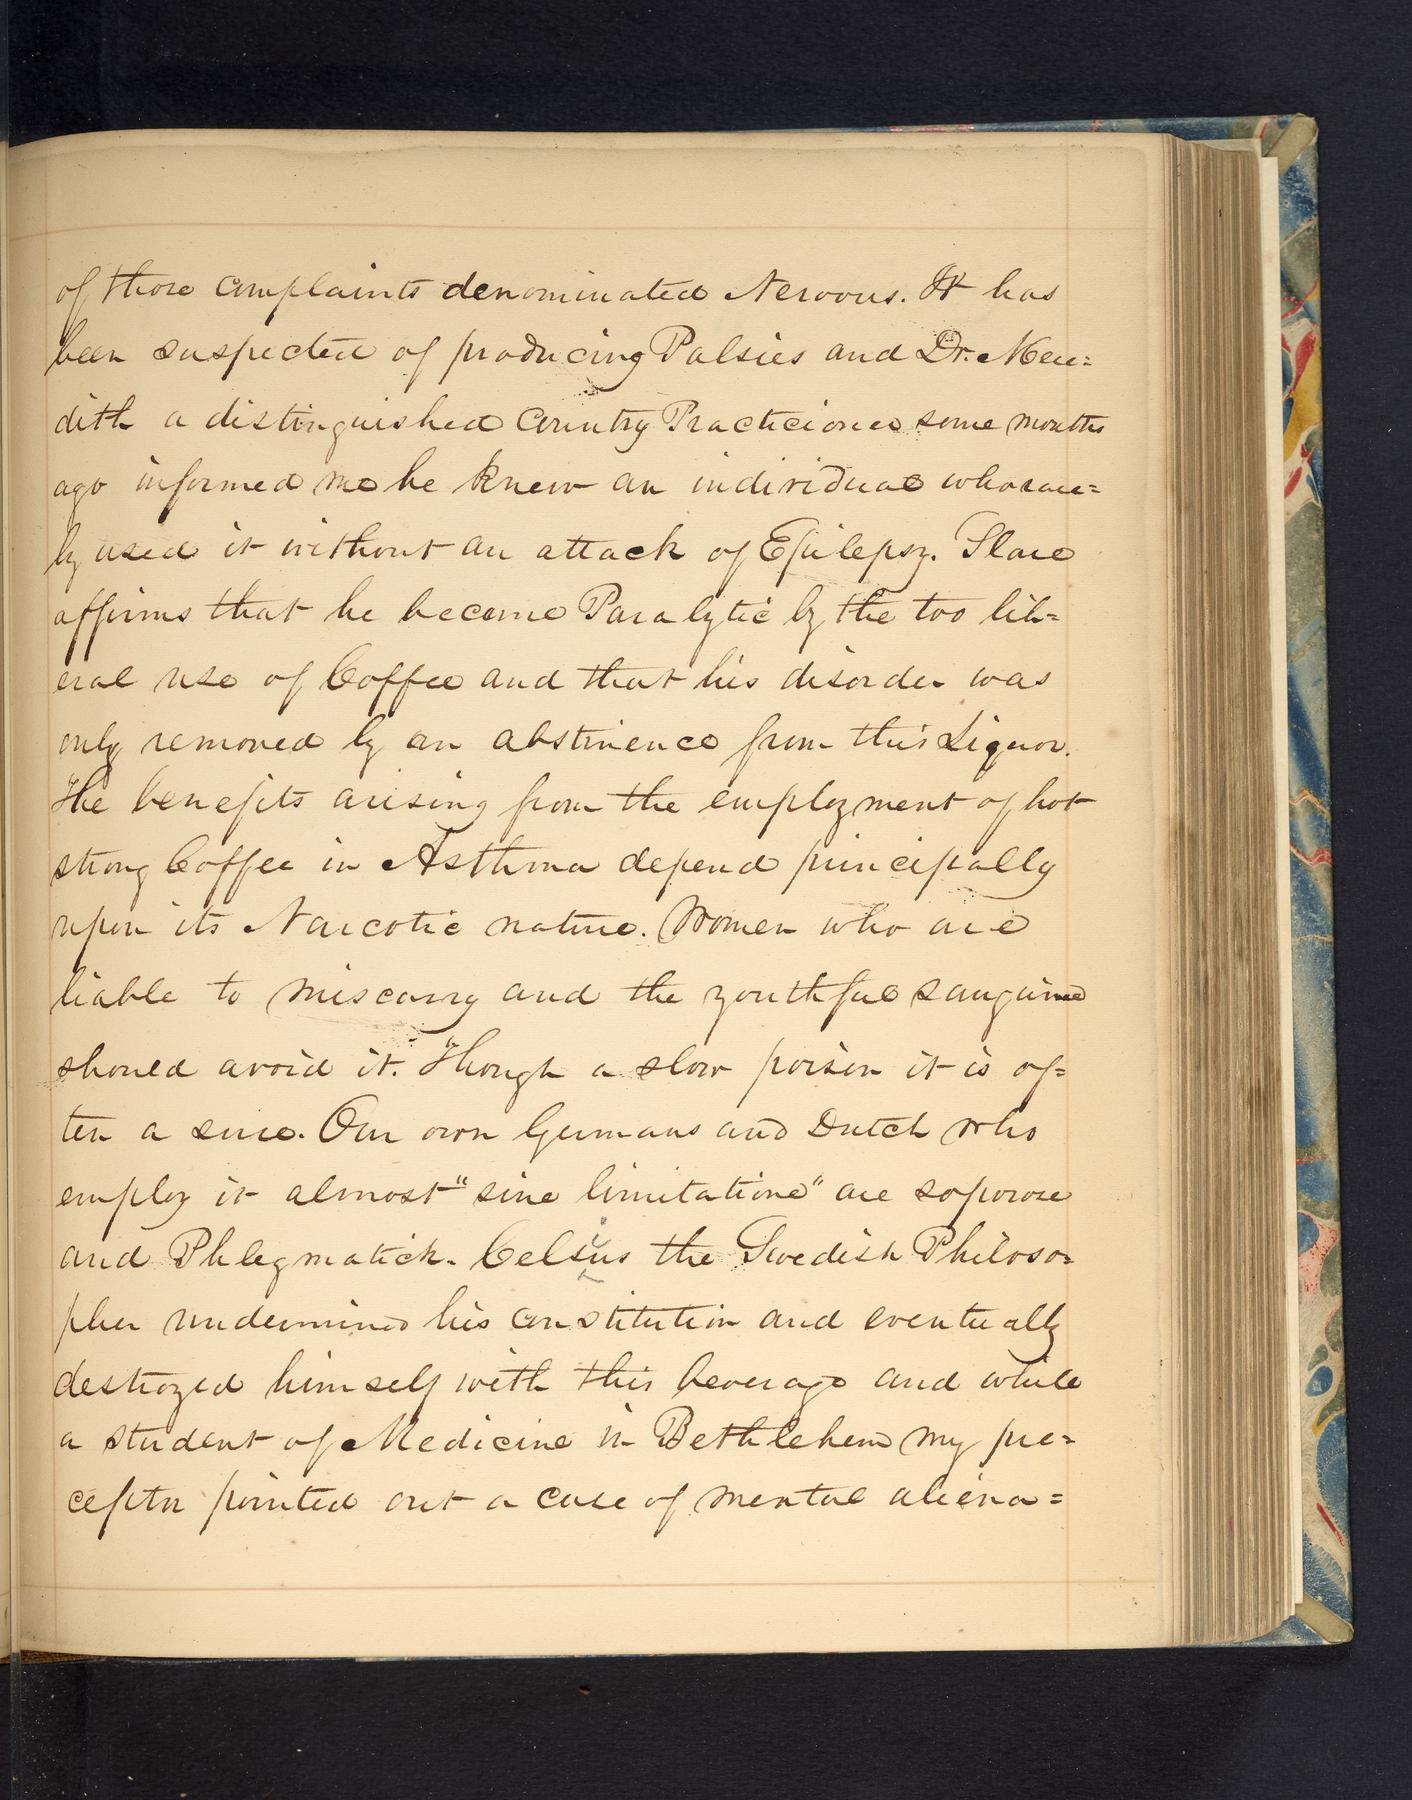 of those complaints denominated Nervous. It has
been suspected of producing Palsies and Dr. Mere=
dith a distinguished Country Practicioner some months
ago informed me he knew an individual who rare=
ly used it without an attack of Epilepsy. Slare
affirms that he became Paralytic by the too lib=
eral use of Coffee and that his disorder was
only removed by an abstinence from this Liquor.
The benefits arising from the employment of hot
strong Coffee in Asthma depend principally
upon its Narcotic nature. Women who are
liable to miscarry and the youthful sanguine
should avoid it. Though a slow poison it is of=
ten a sure. Our own Germans and Dutch who
employ it almost "sine limitatione" are soporose
and Phlegmatick. Celsius the Swedish Philoso=
pher undermined his constitution and eventually
destroyed himself with this beverage and while
a student of Medicine in Bethlehem my pre=
ceptor pointed out a case of mental aliena=